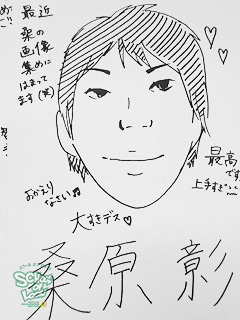 最近
桑の
画像
集めに
はまって
ます(笑)
最高
です
上手すぎ(..
おかえり
なさい♫
大すきデス♡
桑原 彰